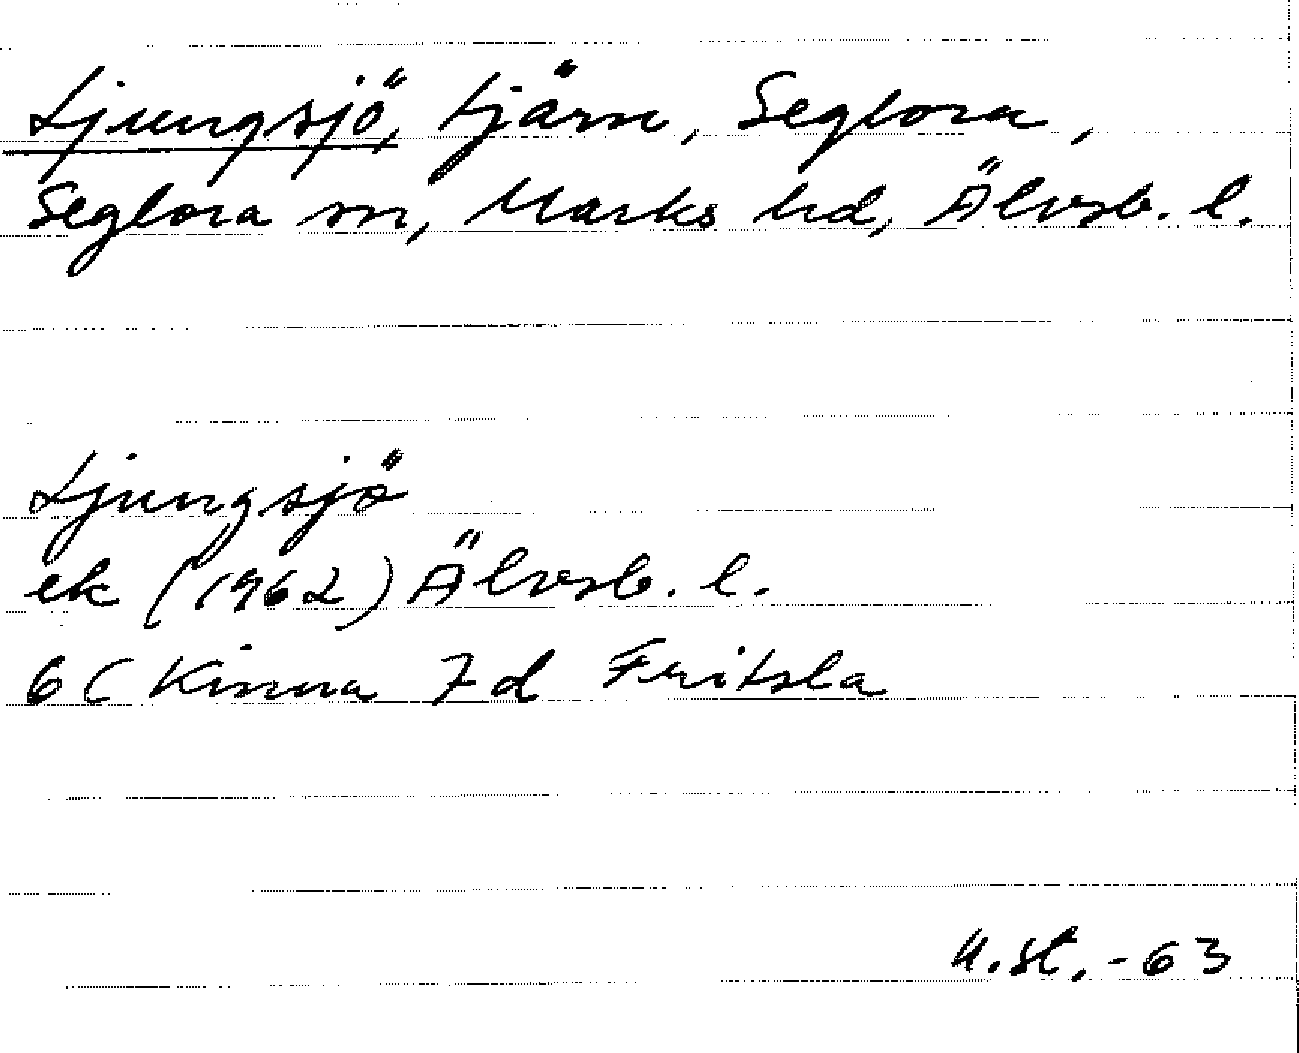 Ljungsjö, tjärn, Seglora,
Seglora sn, Marks hd, Älvsb. l.
Ljungsjö
ek (1962) Älvsb. l.
6C Kinna 7d Fritsla
U.st.-63